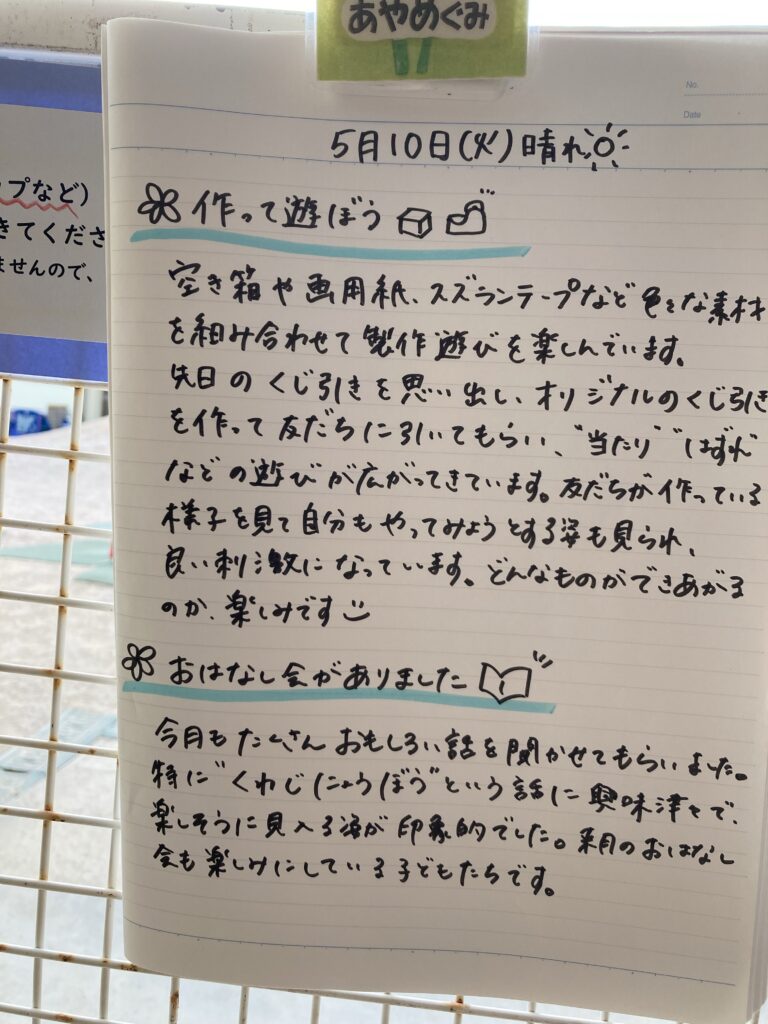 あやめぐみ
No.
Date
ップなど)
きてくださ
ませんので、
5月10日(火)晴れ
作って遊ぼう
空き箱や画用紙、スズランテープなど色々な素材
を組み合わせて製作遊びを楽しんでいます。
先日のくじ引きを思い出し、オリジナルのくじ引き
を作って友だちに引いてもらい、"当たり" "はずれ"
などの遊びが広がってきています。友だちが作っている
様子を見て自分もやってみようとする姿も見られ、
良い刺激になっています。どんなものができあがる
のか、楽しみです
おはなし会がありました
今月もたくさんおもしろい話を聞かせてもらいました。
特に"くわじにょうぼう"という話に興味津々で、
楽しそうに見入る姿が印象的でした。来月のおはなし
会も楽しみにしている子どもたちです。